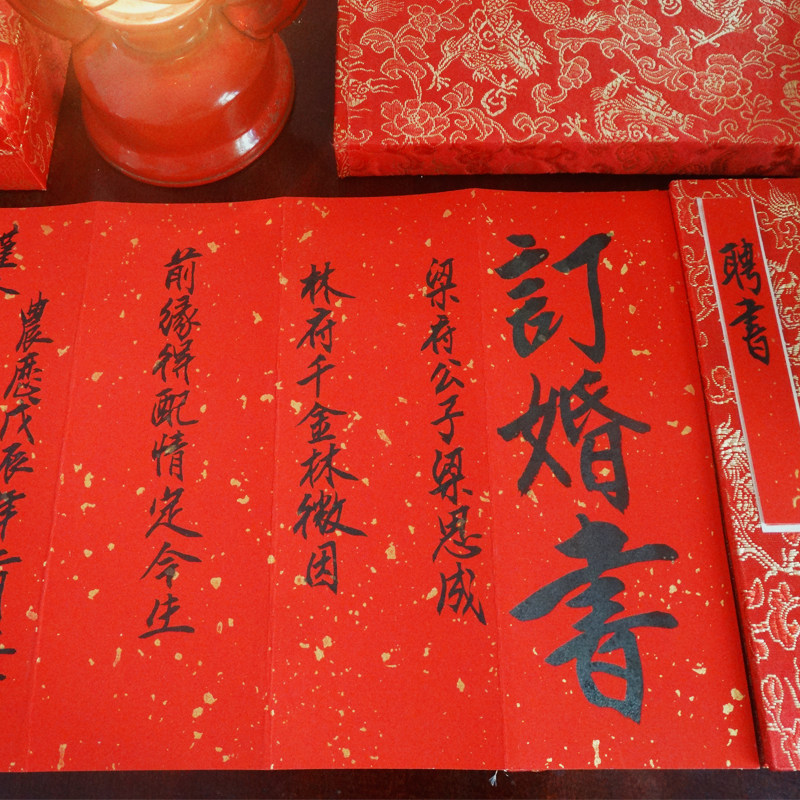 聘書
訂婚書
梁府公子梁思成
林府千金林徽因
前緣得配情定今生
農歷戊辰年二月